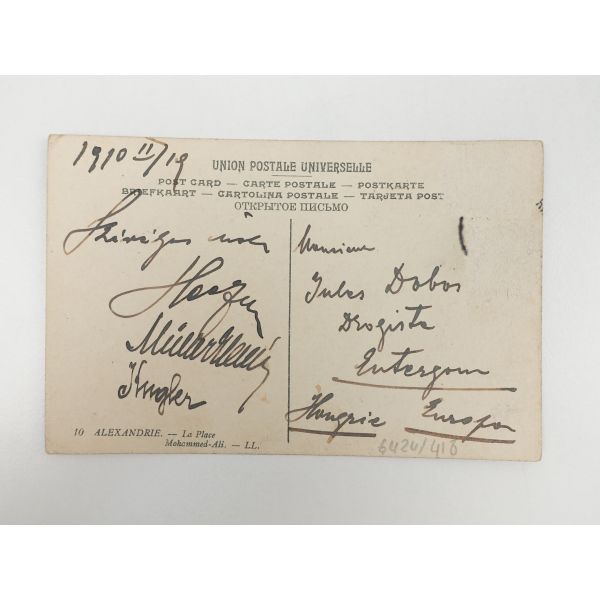 1910 II/19
UNION POSTALE UNIVERSELLE
POST CARD — CARTE POSTALE — POSTKARTE
BRIEFKAART — CARTOLINA POSTALE — TARJETA POST
ОТКРЫТОЕ ПИСЬМО
Szívélyes üdv
Kugler
Monsieur
Jules Dobos
Drogiste
Entergom
Hongrie Europa
10 ALEXANDRIE. — La Place
Mohammed-Ali. — LL.
6424/418